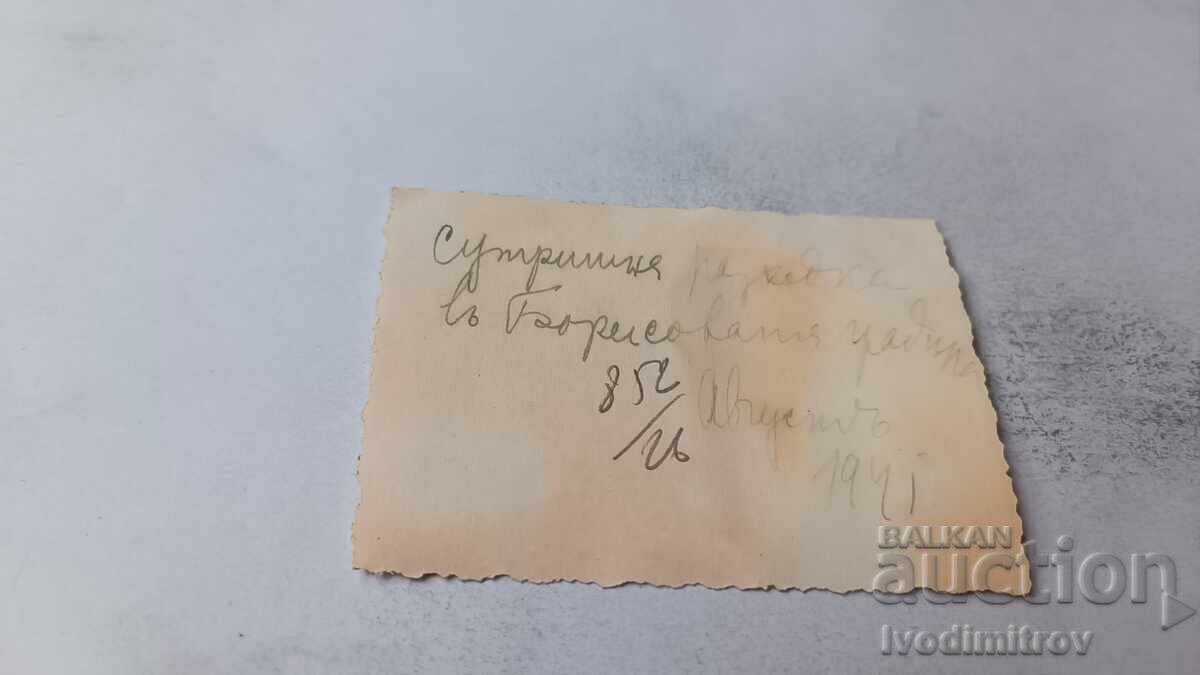 Сутришня разходка
въ Борисовата градина
852
/26
Августъ
1941
BALKAN
auction
Ivodimitrov